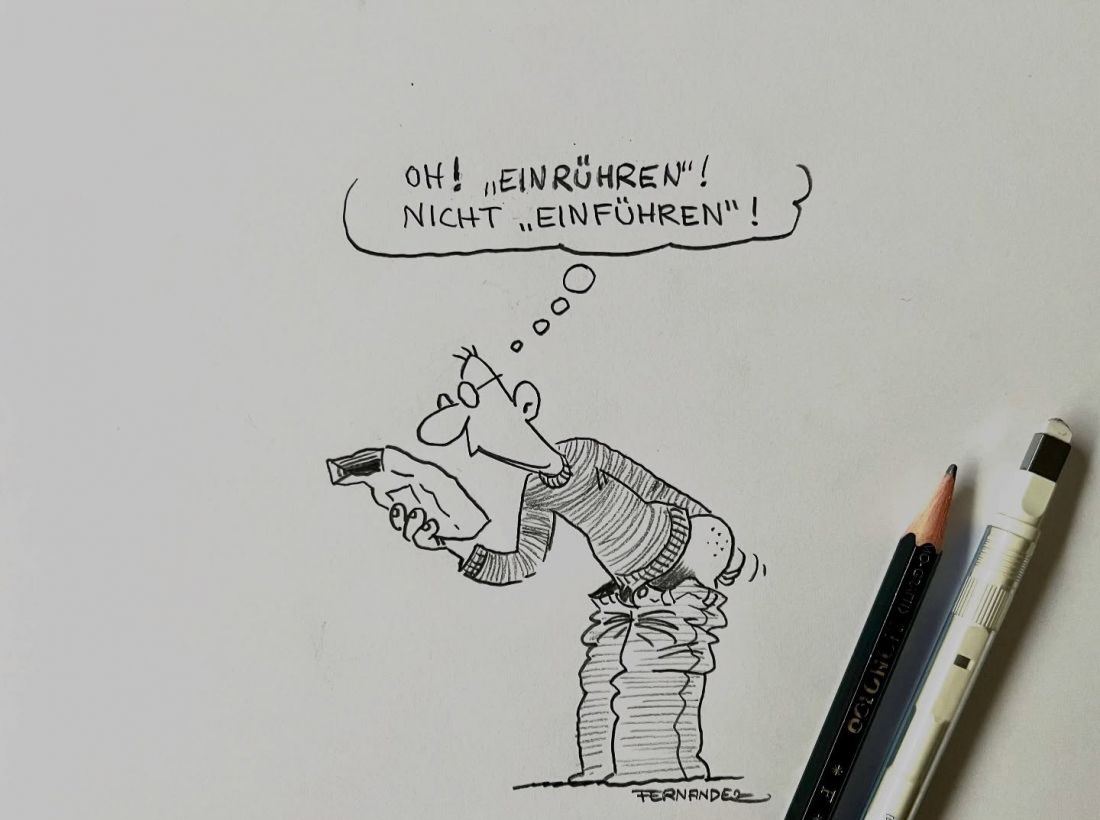 OH! „EINRÜHREN“!
NICHT „EINFÜHREN“!
FERNANDEZ